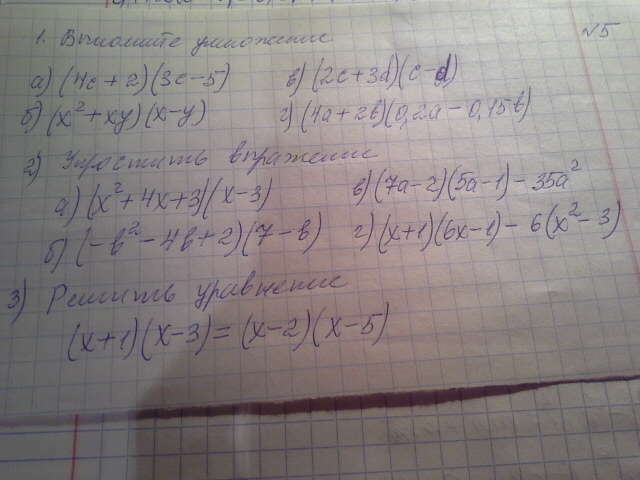 №5
1. Выполните умножение
а) (4c + 2)(3c - 5) в) (2c + 3d)(c - d)
б) (x² + xy)(x - y) г) (4a + 2b)(0,2a - 0,15b)
2) Упростить выражение
а) (x² + 4x + 3)(x - 3) в) (7a - 2)(5a - 1) - 35a²
б) (-b² - 4b + 2)(7 - b) г) (x + 1)(6x - 1) - 6(x² - 3)
3) Решить уравнение
(x + 1)(x - 3) = (x - 2)(x - 5)